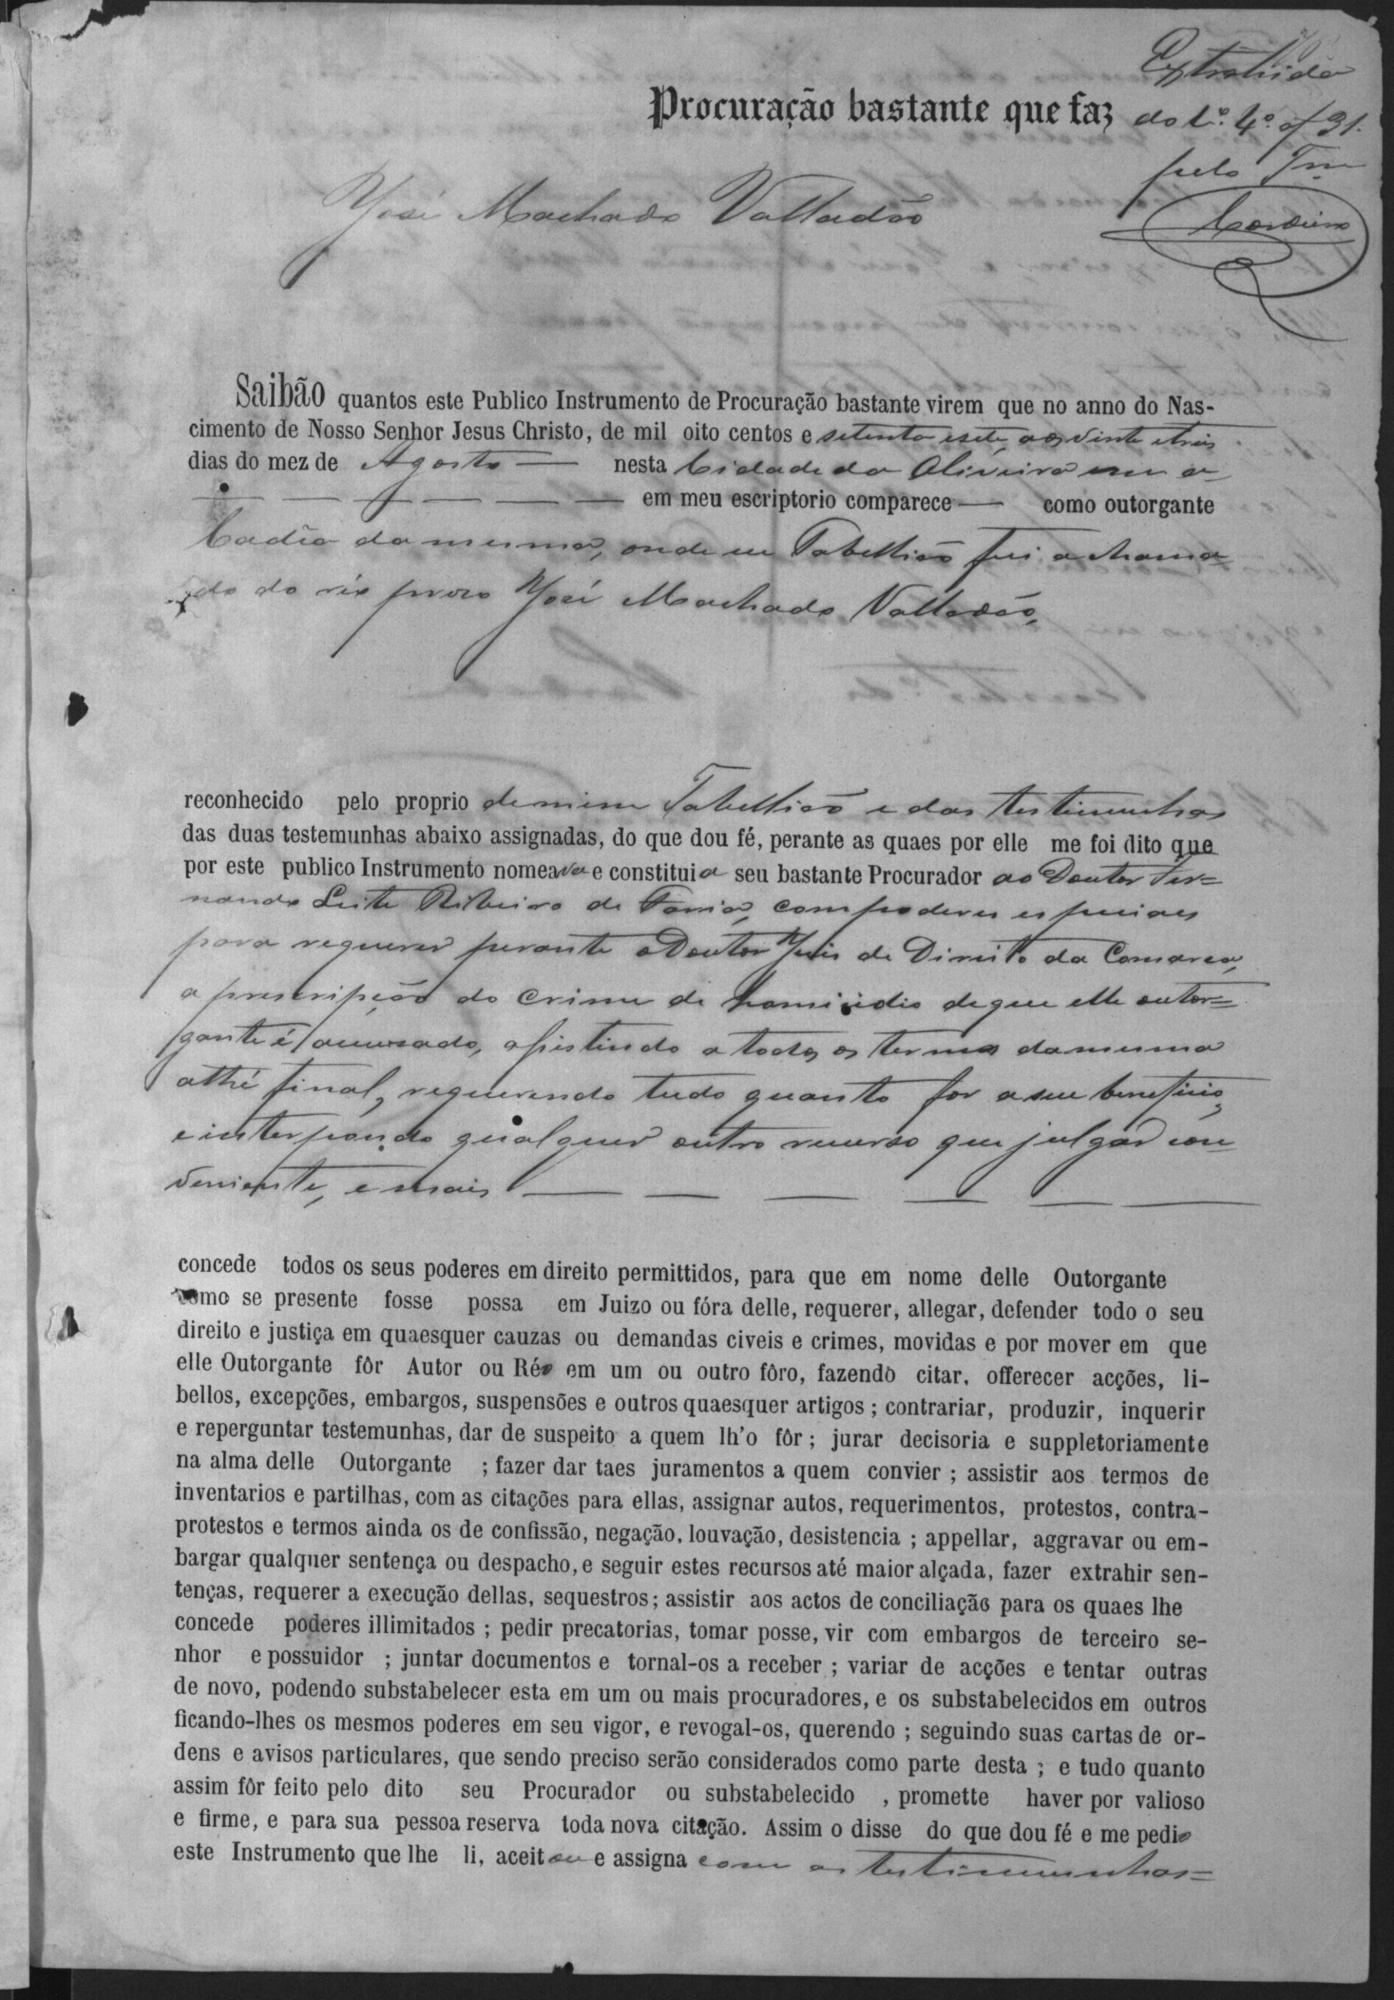 Extrahida
do L.º 4.º af 31.
pelo Tm
Cordeiro
Procuração bastante que faz
José Machado Valladão
Saibão quantos este Publico Instrumento de Procuração bastante virem que no anno do Nas-
cimento de Nosso Senhor Jesus Christo, de mil oito centos e setenta esete, aos vinte etreis
dias do mez de Agosto — nesta Cidade da Oliveira em a
— — — — — — em meu escriptorio comparece — como outorgante
Cadêa da mesma, onde eu Tabellião fui a chama-
do do réo prezo José Machado Valladão,
reconhecido pelo proprio demim Tabellião e das testimunhas
das duas testemunhas abaixo assignadas, do que dou fé, perante as quaes por elle me foi dito que
por este publico Instrumento nomeava e constituia seu bastante Procurador ao Doutor Fer=
nando Leite Ribeiro de Faria, compoderes especiaes
para requerer perante o Doutor Juis de Direito da Comarca,
a prescripção do crime de homicidio deque elle outor=
gante é accusado, assistindo a todos os termos damesma
athé final, requerendo tudo quanto for a seu beneficio,
einterpondo qualquer outro recurso que julgar con-
veniente, e mais — — — — — —
concede todos os seus poderes em direito permittidos, para que em nome delle Outorgante
como se presente fosse possa em Juizo ou fóra delle, requerer, allegar, defender todo o seu
direito e justiça em quaesquer cauzas ou demandas civeis e crimes, movidas e por mover em que
elle Outorgante fôr Autor ou Réo em um ou outro fôro, fazendo citar, offerecer acções, li-
bellos, excepções, embargos, suspensões e outros quaesquer artigos ; contrariar, produzir, inquerir
e reperguntar testemunhas, dar de suspeito a quem lh'o fôr ; jurar decisoria e suppletoriamente
na alma delle Outorgante ; fazer dar taes juramentos a quem convier ; assistir aos termos de
inventarios e partilhas, com as citações para ellas, assignar autos, requerimentos, protestos, contra-
protestos e termos ainda os de confissão, negação, louvação, desistencia ; appellar, aggravar ou em-
bargar qualquer sentença ou despacho, e seguir estes recursos até maior alçada, fazer extrahir sen-
tenças, requerer a execução dellas, sequestros ; assistir aos actos de conciliação para os quaes lhe
concede poderes illimitados ; pedir precatorias, tomar posse, vir com embargos de terceiro se-
nhor e possuidor ; juntar documentos e tornal-os a receber ; variar de acções e tentar outras
de novo, podendo substabelecer esta em um ou mais procuradores, e os substabelecidos em outros
ficando-lhes os mesmos poderes em seu vigor, e revogal-os, querendo ; seguindo suas cartas de or-
dens e avisos particulares, que sendo preciso serão considerados como parte desta ; e tudo quanto
assim fôr feito pelo dito seu Procurador ou substabelecido , promette haver por valioso
e firme, e para sua pessoa reserva toda nova citação. Assim o disse do que dou fé e me pedio
este Instrumento que lhe li, aceitou e assigna com as testimunhas=